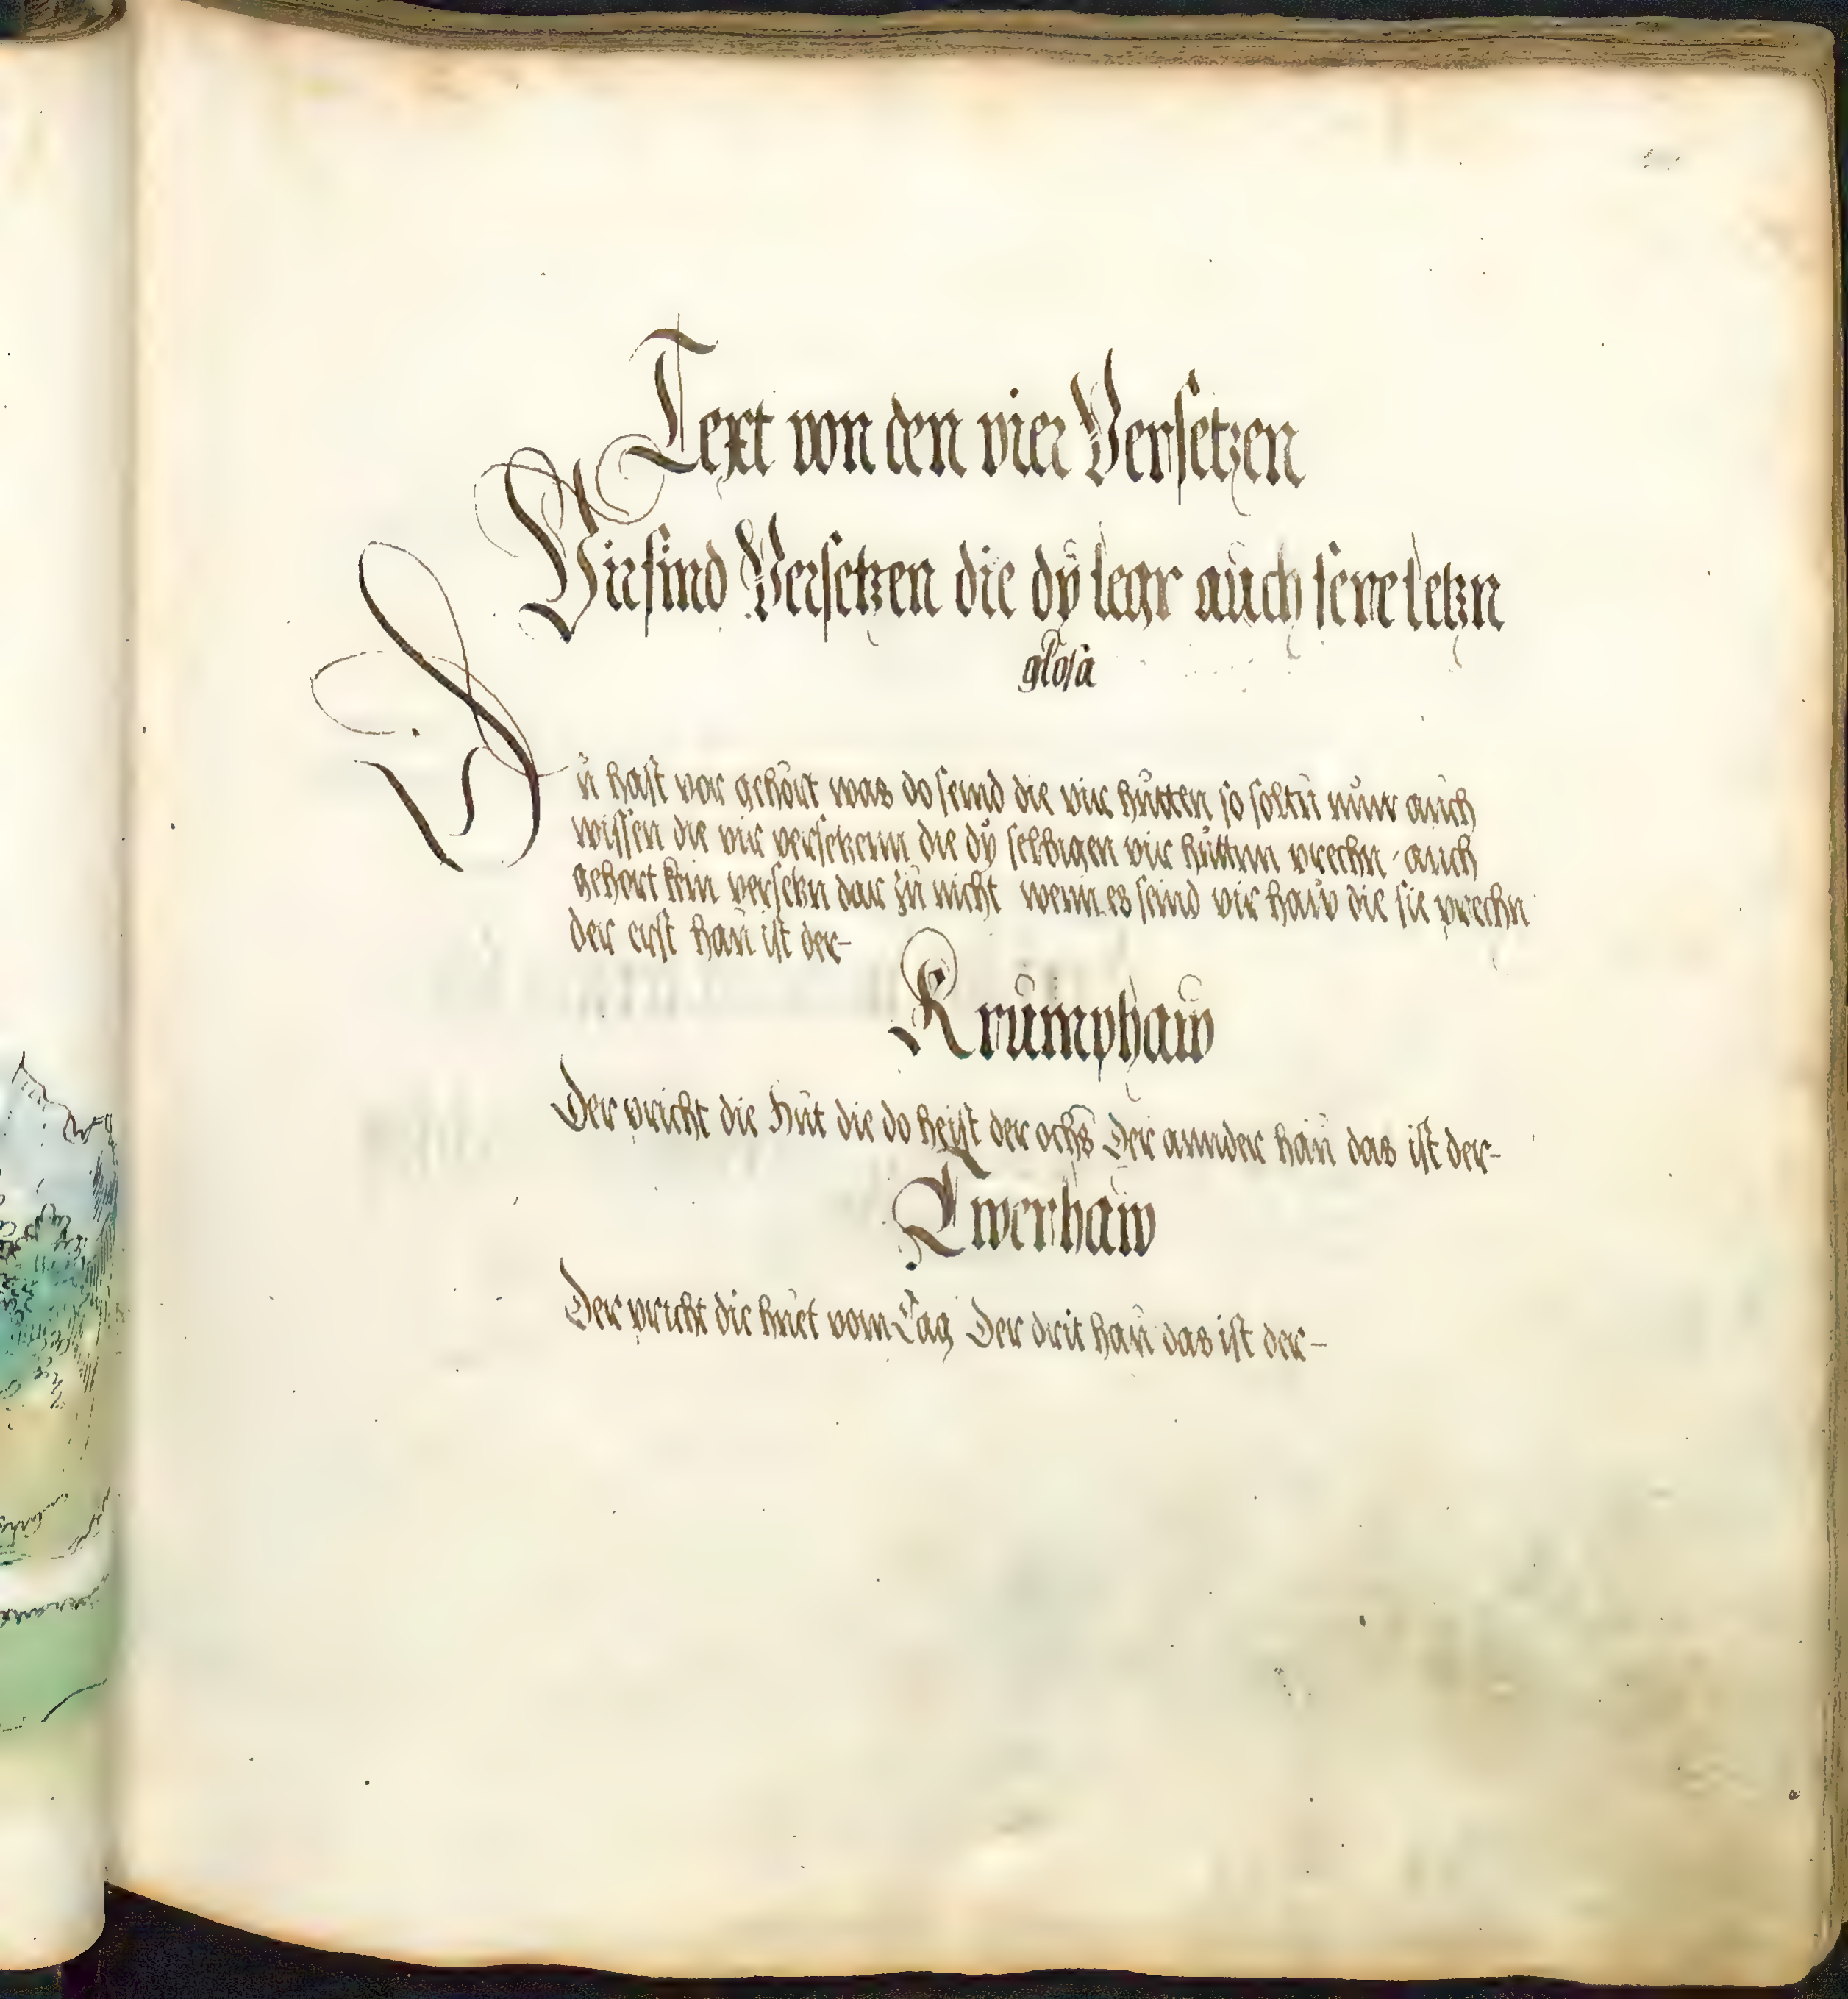 Text von den vier Versetzen
Vir sind Versetzen die dÿ legr auch sere letzn
glosa
Dü hast vor gehört was do seind die vir hütten so soltü nünr aüch
wissen die vir versetzenn die dÿ selbigen vir hüttnn prechn auch
gehort kein versetzn dar zü nicht wenn es seind vir haw die sie prechn
der erst haü ist der-
Krümphaw
Der pricht die Hüt die do heist der ochs Der annder haü das ist der-
Twerhaw
Der pricht die huet vom Tag Der drit haü das ist der-